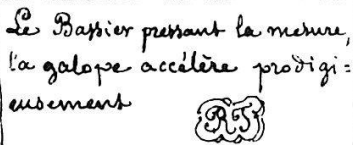 Le Bassier pressant la mesure,
la galope accélère prodigi=
eusement
RT